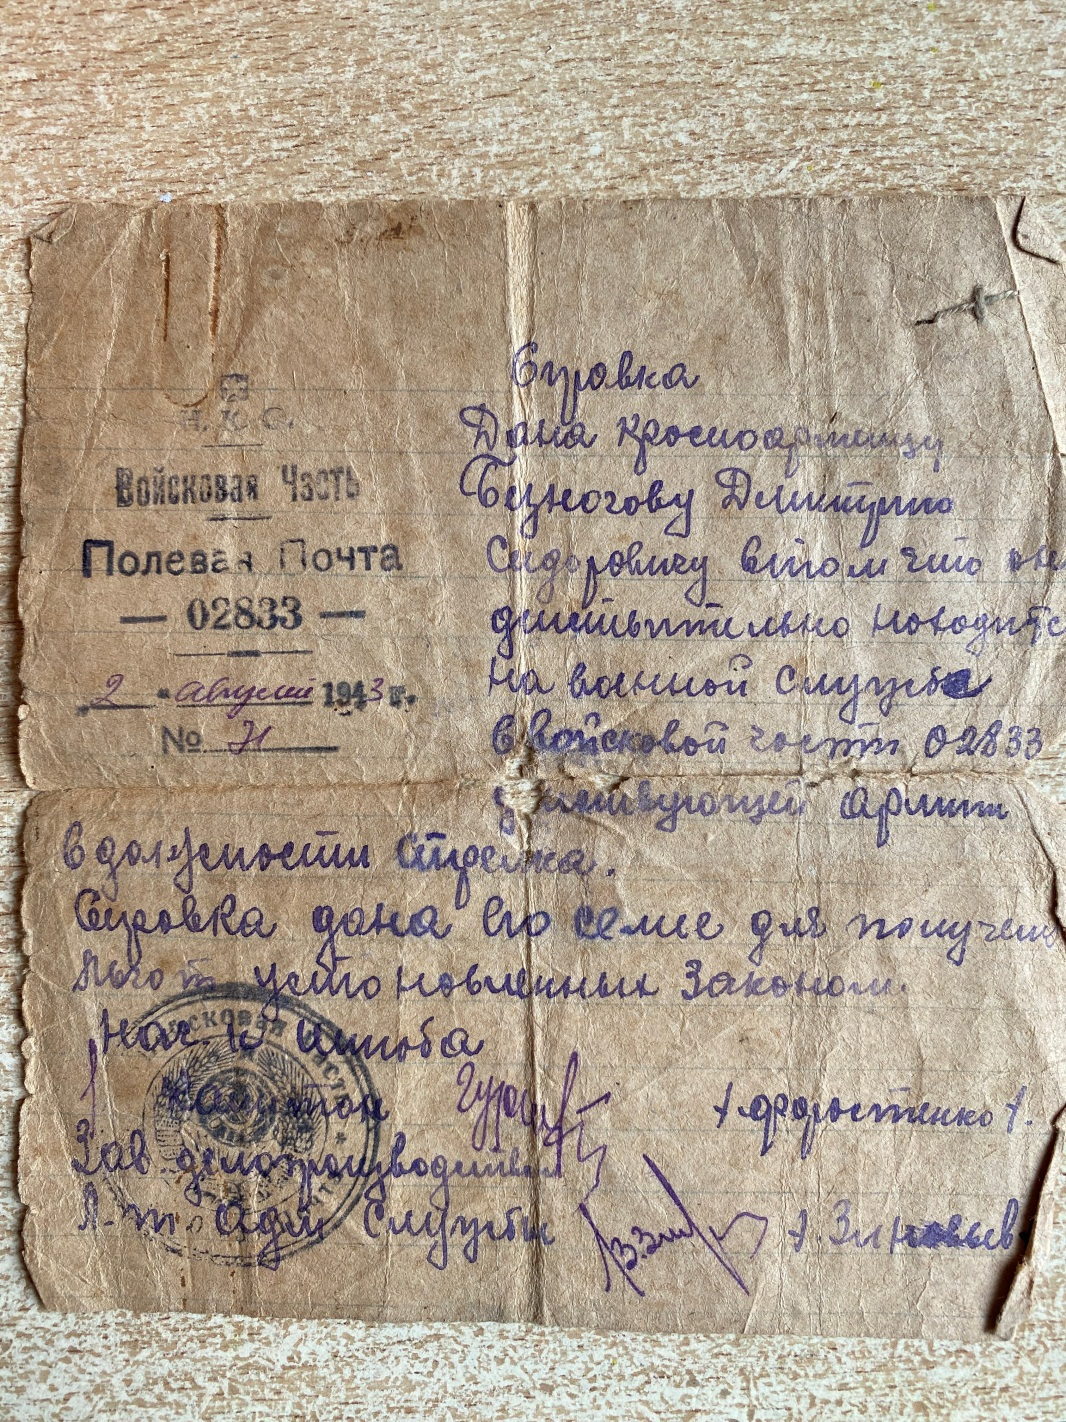 Н. К. О.
Войсковая Часть
Полевая Почта
— 02833 —
2 " август 1943 г.
№
Справка
Дана красноармейцу
Безногову Дмитрию
Сидоровичу в том что он
действительно находится
на военной службе
в войсковой части 02833
действующей армии
в должности стрелка.
Справка дана его семье для получения
льгот установленных законом.
Нач-к штаба
Капитан /Форостенко/.
Зав. делопроизводством
Л-т адм службы /. Зиновьев